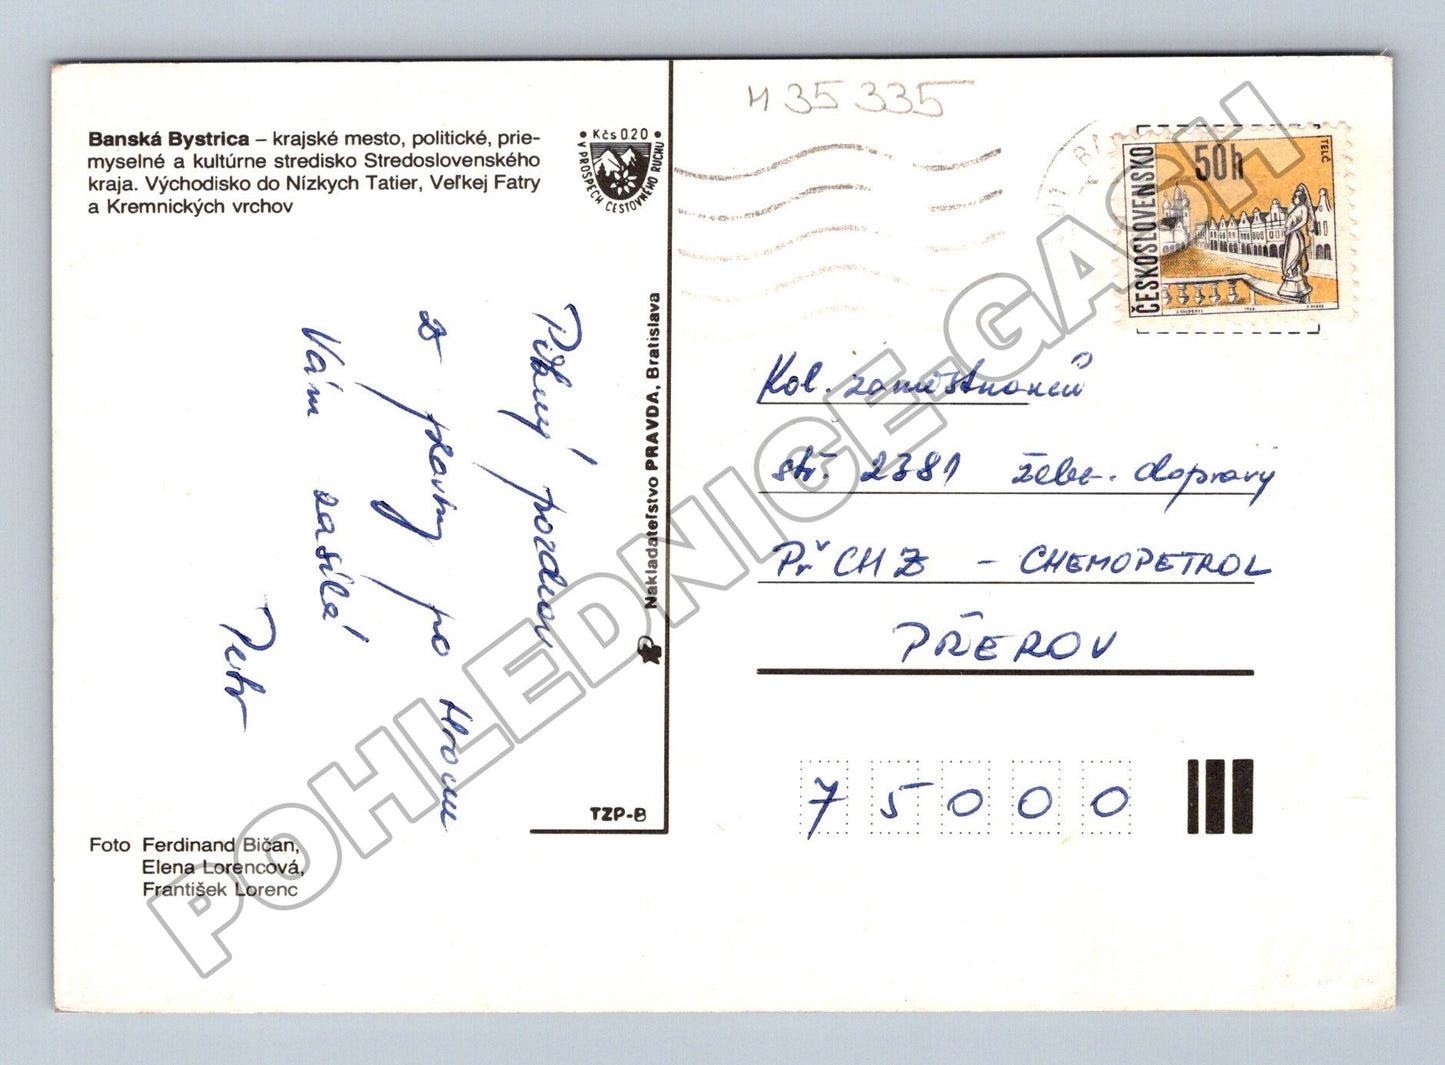 Banská Bystrica – krajské mesto, politické, prie-
myselné a kultúrne stredisko Stredoslovenského
kraja. Východisko do Nízkych Tatier, Veľkej Fatry
a Kremnických vrchov
• Kčs 0.20 •
V PROSPECH CESTOVNÉHO RUCHU
Pěkný pozdrav
z plavby po Hronu
Vám zasílá
Petr
Foto Ferdinand Bičan,
Elena Lorencová,
František Lorenc
Nakladateľstvo PRAVDA, Bratislava
TZP-B
M 35 335
ČESKOSLOVENSKO
50h
TELČ
Kol. zaměstnanců
stř. 2381 želez. dopravy
Př CHZ - CHEMOPETROL
PŘEROV
75000
POHLEDNICE-GASH